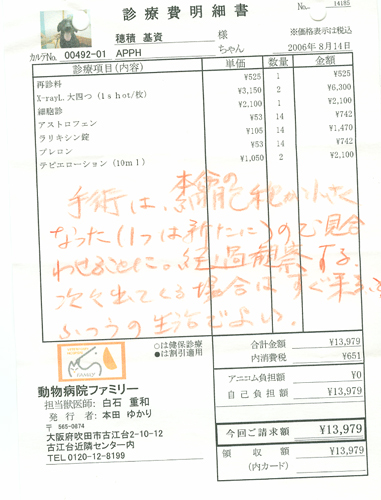 診療費明細書
No. 14185
穂積 基資 様
※価格表示は税込
カルテNo. 00492-01 APPH ちゃん 2006年8月14日
診療項目(内容) 単価 数量 金額
再診料 ¥525 1 ¥525
X-rayL.大四つ(1shot/枚) ¥3,150 2 ¥6,300
細胞診 ¥2,100 1 ¥2,100
アストロフェン ¥53 14 ¥742
ラリキシン錠 ¥105 14 ¥1,470
プレロン ¥53 14 ¥742
テビエローション(10ml) ¥1,050 2 ¥2,100
手術は、本命の 腫が小さく
なった(1つは新たに)ので見合
わせることに。経過観察する。
次々出てくる場合はすぐ来る。
ふつうの生活でよい。
○は健保診療
●は割引適用
合計金額 ¥13,979
内消費税 ¥651
アニコム負担額 ¥0
自己負担額 ¥13,979
今回ご請求額 ¥13,979
領収額
(内カード)
FAMILY
動物病院ファミリー
担当獣医師: 白石 重和
発行者: 本田 ゆかり
〒 565-0874
大阪府吹田市古江台2-10-12
古江台近隣センター内
TEL0120-12-8199